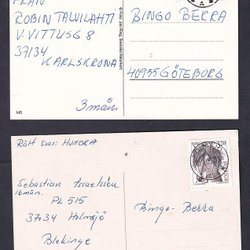 FRÅN
ROBIN TALVILAHTI
V. VITTUSG 8
37134
KARLSKRONA
3 mån
BINGO BERRA
40955 GÖTEBORG
145
Rätt svar: HUNDRA
Sebastian
PL 515
37034 Holmsjö
Blekinge
Bingo-Berra